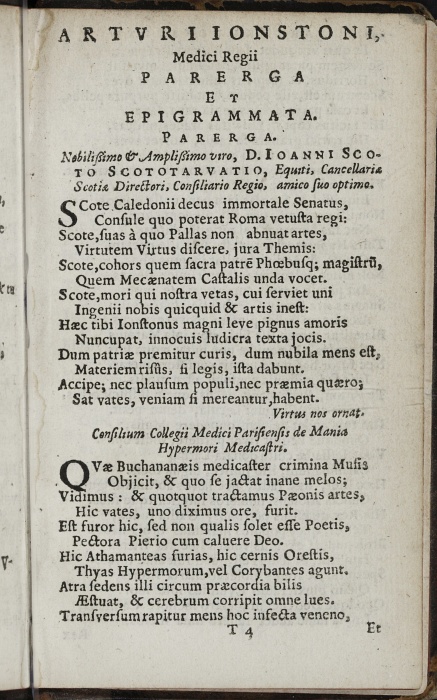 ARTVRI IONSTONI,
Medici Regii
PARERGA
ET
EPIGRAMMATA.
PARERGA.
Nobilißimo & Amplißimo viro, D. IOANNI SCO-
TO SCOTOTARVATIO, Equiti, Cancellariæ
Scotiæ Directori, Consiliario Regio, amico suo optimo.
SCote Caledonii decus immortale Senatus,
Consule quo poterat Roma vetusta regi:
Scote, suas à quo Pallas non abnuat artes,
Virtutem Virtus discere, jura Themis:
Scote, cohors quem sacra patrẽ Phœbusq; magistrũ,
Quem Mecænatem Castalis unda vocet.
Scote, mori qui nostra vetas, cui serviet uni
Ingenii nobis quicquid & artis inest:
Hæc tibi Ionstonus magni leve pignus amoris
Nuncupat, innocuis ludicra texta jocis.
Dum patriæ premitur curis, dum nubila mens est,
Materiem risûs, si legis, ista dabunt.
Accipe; nec plausum populi, nec præmia quæro;
Sat vates, veniam si mereantur, habent.
Virtus nos ornat.
Consilium Collegii Medici Parisiensis de Mania
Hypermori Medicastri.
QVæ Buchananæis medicaster crimina Musis
Objicit, & quo se jactat inane melos;
Vidimus: & quotquot tractamus Pæonis artes,
Hic vates, uno diximus ore, furit.
Est furor hic, sed non qualis solet esse Poetis,
Pectora Pierio cum caluere Deo.
Hic Athamanteas furias, hic cernis Orestis,
Thyas Hypermorum, vel Corybantes agunt.
Atra sedens illi circum præcordia bilis
Æstuat, & cerebrum corripit omne lues.
Transversum rapitur mens hoc infecta veneno,
T 4 Et